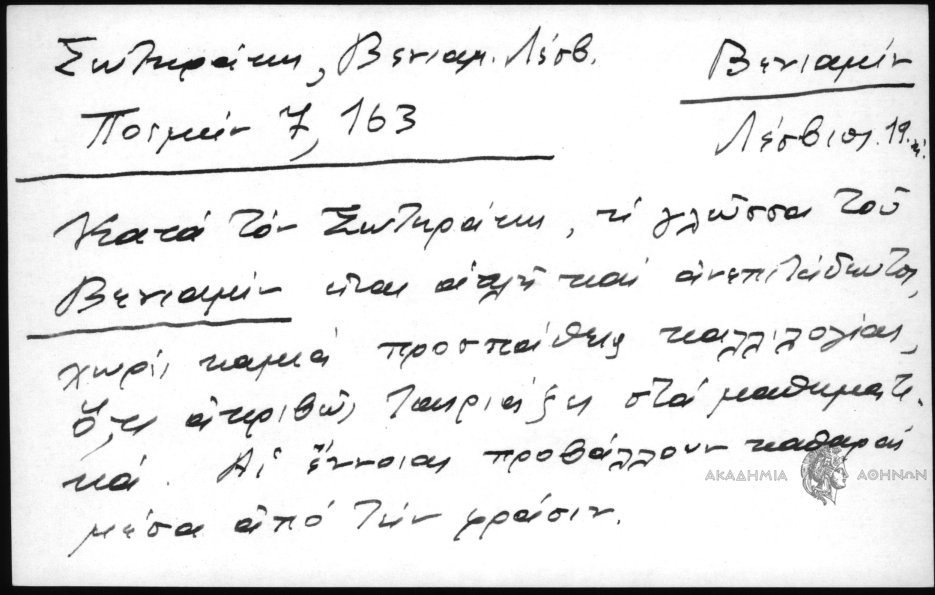 Σωτηράκης, Βενιαμ. Λέσβ.
Βενιαμίν
Ποιμήν 7, 163
Λέσβιος. 19
Κατά τόν Σωτηράκην, ἡ γλῶσσα τοῦ
Βενιαμίν εἶναι ἁπλῆ καί ἀνεπιτήδευτος,
χωρίς καμιά προσπάθεια καλλιλογίας,
ὅ,τι ἀκριβῶς ταιριάζει στά μαθηματι-
κά. Αἱ ἔννοιαι προβάλλουν καθαραί
μέσα ἀπό τήν φράσιν.
ΑΚΑΔΗΜΙΑ ΑΘΗΝΩΝ